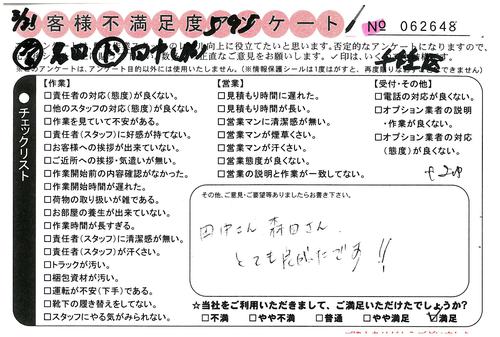 お客様不満足度アンケート!
No 062648
【作業】
□責任者の対応(態度)が良くない。
□他のスタッフの対応(態度)が良くない。
□作業を見ていて不安がある。
□責任者(スタッフ)に好感が持てない。
□お客様への挨拶が出来ていない。
□ご近所への挨拶・気遣いが無い。
□作業開始前の内容確認がなかった。
□作業開始時間が遅れた。
□荷物の取り扱いが雑である。
□お部屋の養生が出来ていない。
□作業時間が長すぎる。
□責任者(スタッフ)に清潔感が無い。
□責任者(スタッフ)が汗くさい。
□トラックが汚い。
□梱包資材が汚い。
□運転が不安(下手)である。
□靴下の履き替えをしてない。
□スタッフにやる気がみられない。
【営業】
□見積もり時間に遅れた。
□見積もり時間が長い。
□営業マンに清潔感が無い。
□営業マンが煙草くさい。
□営業マンが汗くさい。
□営業態度が良くない。
□営業の説明と作業が一致してない。
【受付・その他】
□電話の対応が良くない。
□オプション業者の説明
・作業が良くない。
□オプション業者の対応
(態度)が良くない。
●チェックリスト
その他、ご意見・ご要望等ありましたらお書き下さい。
田中さん 森田さん
とても良かったです!!
☆当社をご利用いただきまして、ご満足いただけたでしょうか?
□不満 □やや不満 □普通 □やや満足 ☑満足